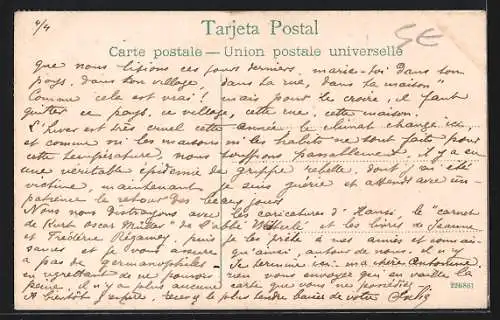 4/4
Tarjeta Postal
Carte postale — Union postale universelle
que nous lisions ces jours derniers, marie-toi dans ton
pays, dans ton village, dans ta rue, dans ta maison"
Comme cela est vrai! mais pour le croire, il faut
quitter ce pays, ce village, cette rue, cette maison.
L'hiver est très cruel cette année, le climat change ici,
et comme ni les maisons ni les habits ne sont faits pour
cette température, nous souffrons passablement, il y a eu
une véritable épidémie de grippe rebelle dont j'ai été
victime, maintenant je suis guérie et attends avec im-
patience le retour des beaux jours
Nous nous distrayons avec les caricatures d'Hansi, le "carnet
de Kurt Oscar Müller" de l'abbé et les livres de Jeanne
et Frédéric Régamey, puis je les prête à mes amis et connais-
sances et vous assure qu'ainsi, autour de nous, il n'y
a pas de germanophiles. Je termine ici ma chère Antonine,
en regrettant de ne pouvoir rien vous envoyer qui en vaille la
peine, il n'y a plus aucune carte que vous ne possédiez
A bientôt j'espère, recevez le plus tendre baiser de votre
226861